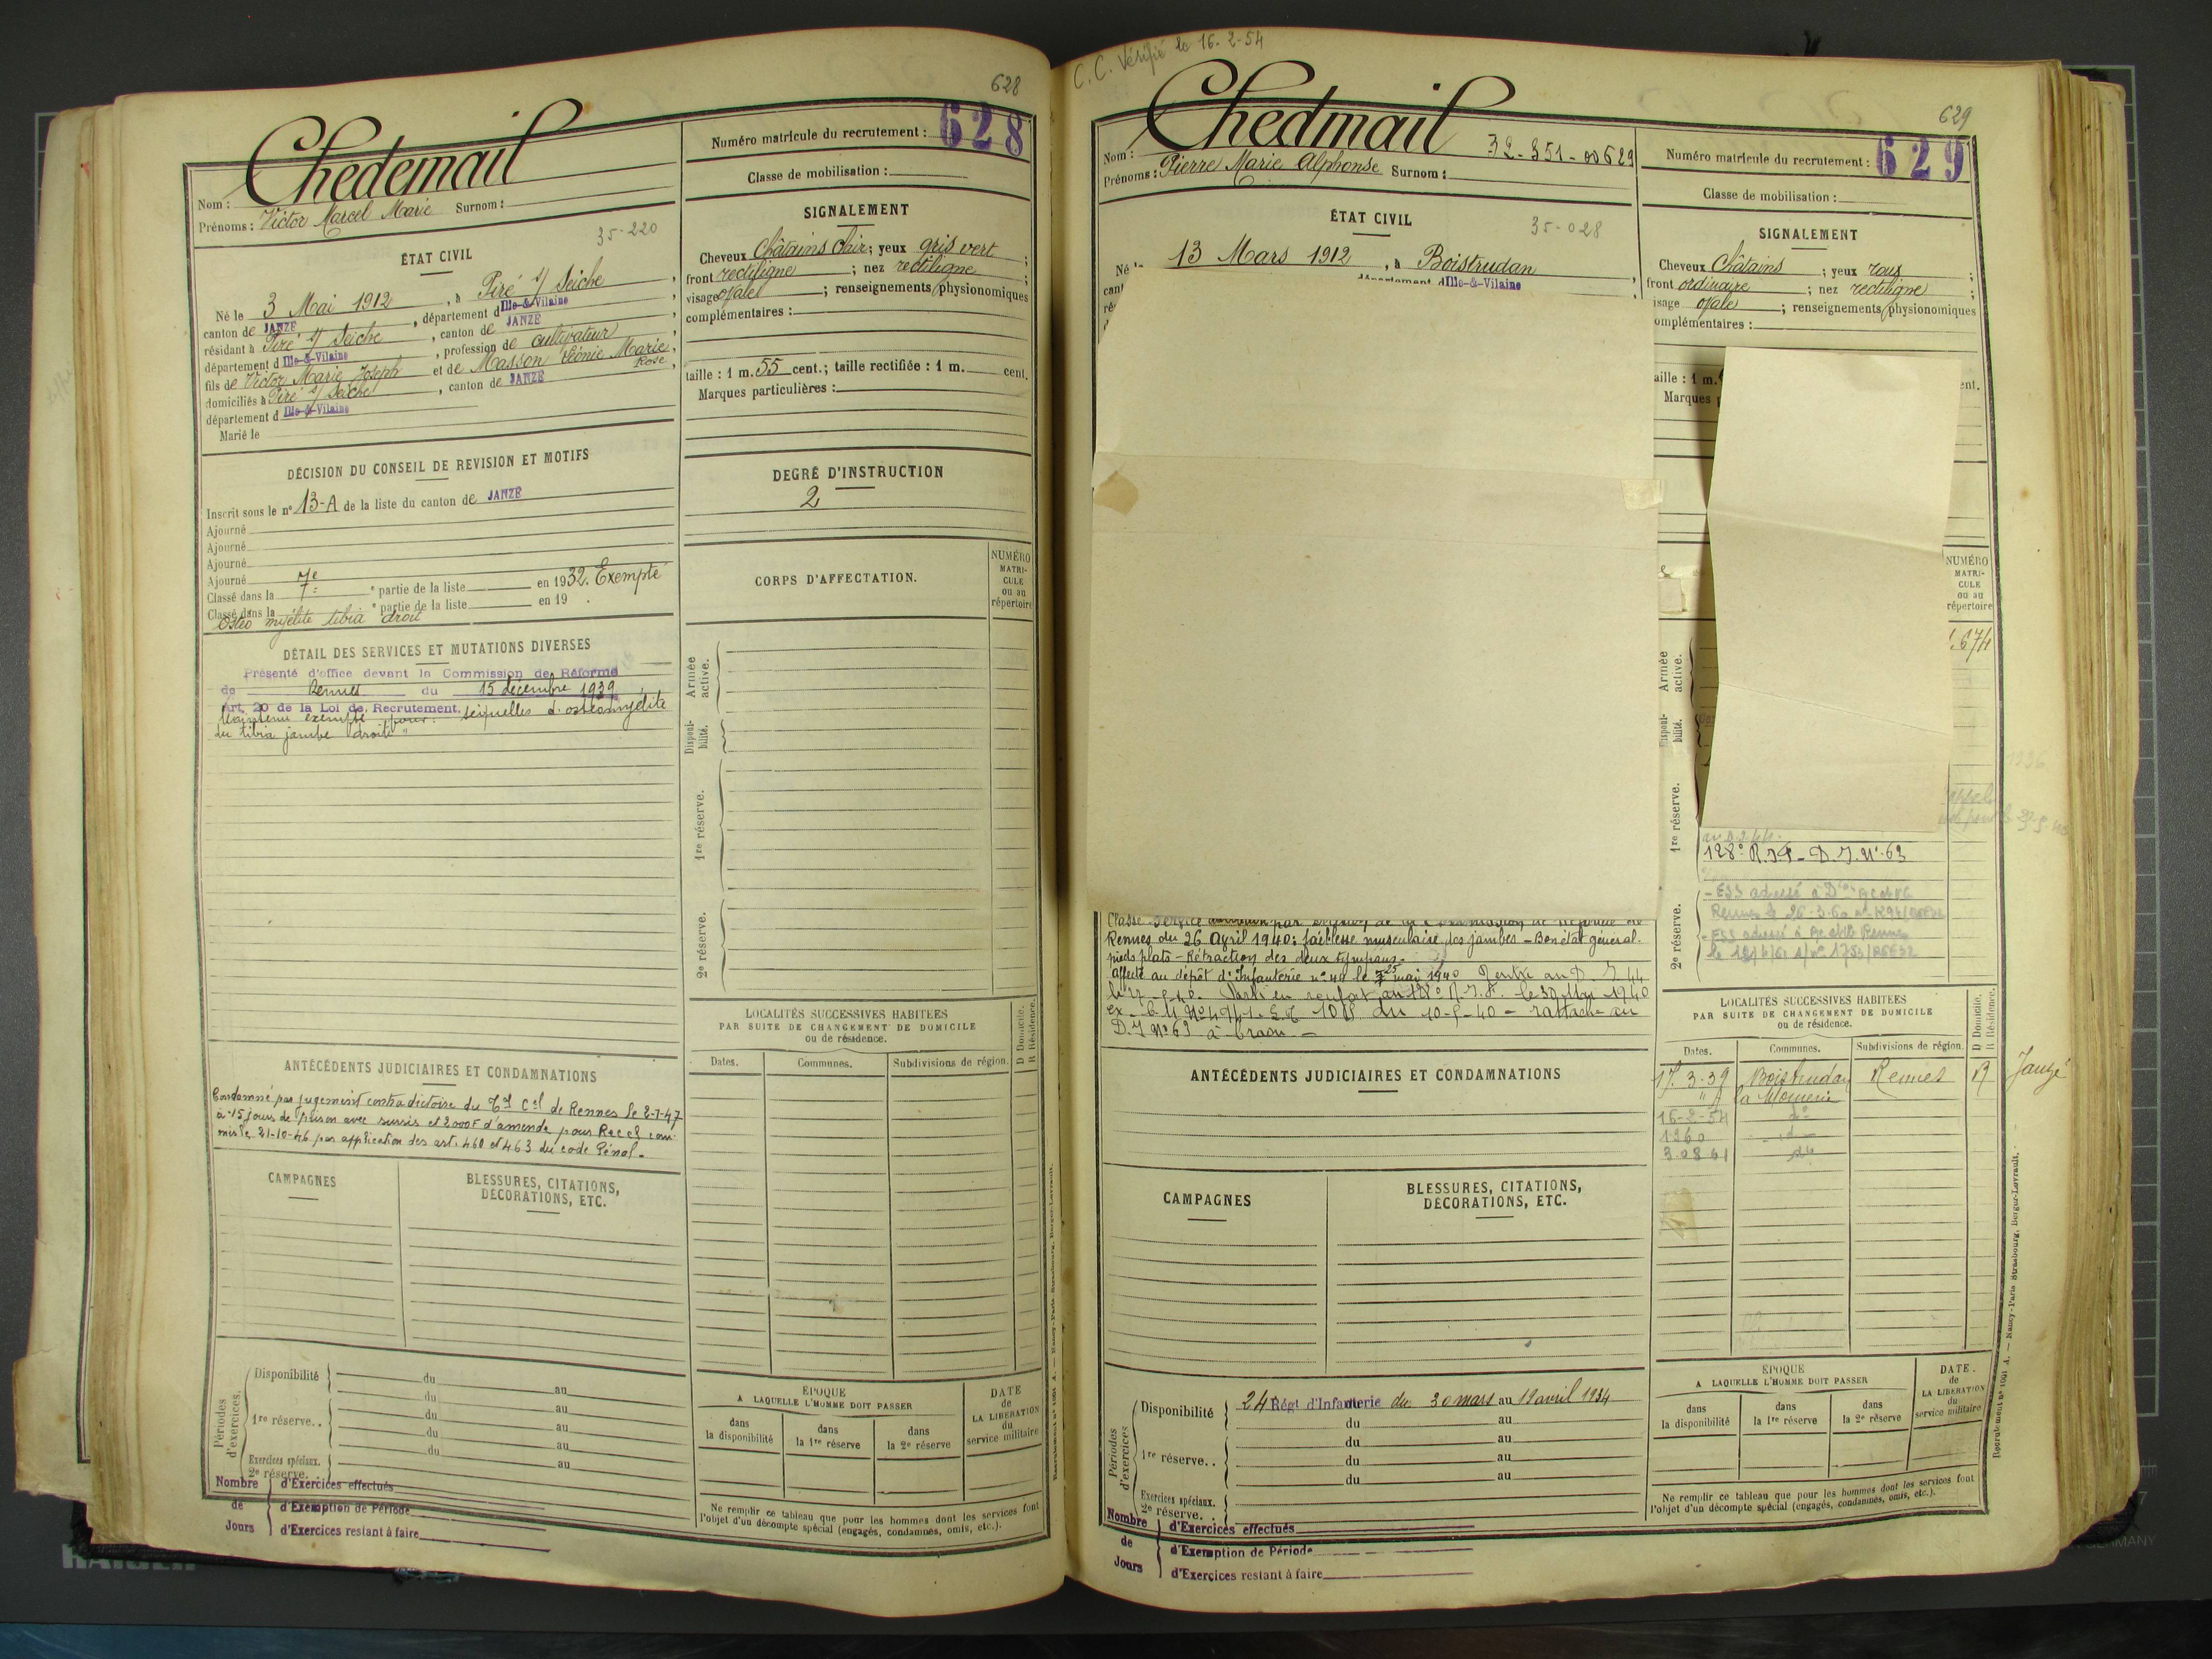 628
Chedemail
Nom :
Prénoms : Victor Marcel Marie Surnom :
Numéro matricule du recrutement : 628
Classe de mobilisation :
35-220
ÉTAT CIVIL
Né le 3 Mai 1912, à Piré s/ Seiche,
canton de JANZÉ, département d Ille-&-Vilaine,
résidant à Piré s/ Seiche, canton de JANZÉ,
département d Ille-&-Vilaine, profession de cultivateur,
fils de Victor Marie Joseph et de Masson Léonie Marie Rose,
domiciliés à Piré s/ Seiche, canton de JANZÉ
département d Ille-&-Vilaine
Marié le
SIGNALEMENT
Cheveux Châtains clair; yeux gris vert;
front rectiligne; nez rectiligne;
visage ovale; renseignements physionomiques
complémentaires :
taille : 1 m. 55 cent.; taille rectifiée : 1 m. cent.
Marques particulières :
DÉCISION DU CONSEIL DE REVISION ET MOTIFS
Inscrit sous le n° 13-A de la liste du canton de JANZÉ
Ajourné
Ajourné
Ajourné
Ajourné
Classé dans la 7e partie de la liste en 1932. Exempté
Classé dans la e partie de la liste en 19 .
Ostéo myélite tibia droit
DEGRÉ D'INSTRUCTION
2
CORPS D'AFFECTATION.
NUMÉRO MATRICULE ou au répertoire
Armée active.
Disponibilité.
1re réserve.
2e réserve.
DÉTAIL DES SERVICES ET MUTATIONS DIVERSES
Présenté d'office devant la Commission de Réforme
de Rennes du 15 décembre 1939
Art. 20 de la Loi de Recrutement.
Maintenu exempté pour: séquelles d'ostéomyélite
du tibia jambe droite"
ANTÉCÉDENTS JUDICIAIRES ET CONDAMNATIONS
Condamné par jugement contradictoire du Tal Cel de Rennes le 8-1-47
à 15 jours de prison avec sursis et 2000F d'amende pour Recel com-
mis le 21-10-46 par application des art. 460 et 463 du code Pénal.
LOCALITÉS SUCCESSIVES HABITÉES
PAR SUITE DE CHANGEMENT DE DOMICILE
ou de résidence.
Dates. Communes. Subdivisions de région. D Domicile. R Résidence.
CAMPAGNES
BLESSURES, CITATIONS,
DÉCORATIONS, ETC.
Périodes d'exercices.
Disponibilité du au
du au
1re réserve.. du au
du au
du au
Exercices spéciaux.
2e réserve.
Nombre de Jours
d'Exercices effectués
d'Exemption de Période
d'Exercices restant à faire
ÉPOQUE
A LAQUELLE L'HOMME DOIT PASSER
dans la disponibilité
dans la 1re réserve
dans la 2e réserve
DATE de LA LIBÉRATION du service militaire
Ne remplir ce tableau que pour les hommes dont les services font
l'objet d'un décompte spécial (engagés, condamnés, omis, etc.).
C.C. Vérifié le 16-2-54
629
Chedmail
32-351-00629
Nom :
Prénoms : Pierre Marie Alphonse Surnom :
Numéro matricule du recrutement : 629
Classe de mobilisation :
ÉTAT CIVIL
35-028
13 Mars 1912, à Boistrudan
Ille-&-Vilaine
SIGNALEMENT
Cheveux Châtains; yeux roux;
front ordinaire; nez rectiligne;
visage ovale; renseignements physionomiques
complémentaires :
taille : 1 m.
Marques
NUMÉRO MATRICULE ou au répertoire
674
Armée active.
Disponibilité.
1re réserve.
128e R.I.F - D.I. N° 63
2e réserve.
Rennes du 26 Avril 1940: faiblesse musculaire des jambes - Bon état général.
pieds plats - Rétraction des deux tympans.
affecté au dépôt d'Infanterie n°
Parti en renfort au 128e R.I.F. le 30 Mai 1940
D.I N° 63
ANTÉCÉDENTS JUDICIAIRES ET CONDAMNATIONS
LOCALITÉS SUCCESSIVES HABITÉES
PAR SUITE DE CHANGEMENT DE DOMICILE
ou de résidence.
Dates. Communes. Subdivisions de région. D Domicile. R Résidence.
17.3.39 Boistrudan Rennes R Janzé
16-2-54 d°
1260
30861
CAMPAGNES
BLESSURES, CITATIONS,
DÉCORATIONS, ETC.
Périodes d'exercices
Disponibilité 24 Régt d'Infanterie du 30 mars au 19 avril 1934
du au
1re réserve.. du au
du au
du au
Exercices spéciaux.
2e réserve.
Nombre de Jours
d'Exercices effectués
d'Exemption de Période
d'Exercices restant à faire
ÉPOQUE
A LAQUELLE L'HOMME DOIT PASSER
dans la disponibilité
dans la 1re réserve
dans la 2e réserve
DATE. de LA LIBÉRATION du service militaire
Ne remplir ce tableau que pour les hommes dont les services font
l'objet d'un décompte spécial (engagés, condamnés, omis, etc.).
GERMANY